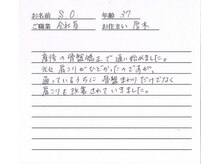 お名前 S.O 年齢 37
ご職業 会社員 お住まい 厚木
産後の骨盤矯正で通い始めました。
元々肩こりがひどかったのですが、
通っているうちに骨盤まわりだけでなく
肩こりも改善されていきました。